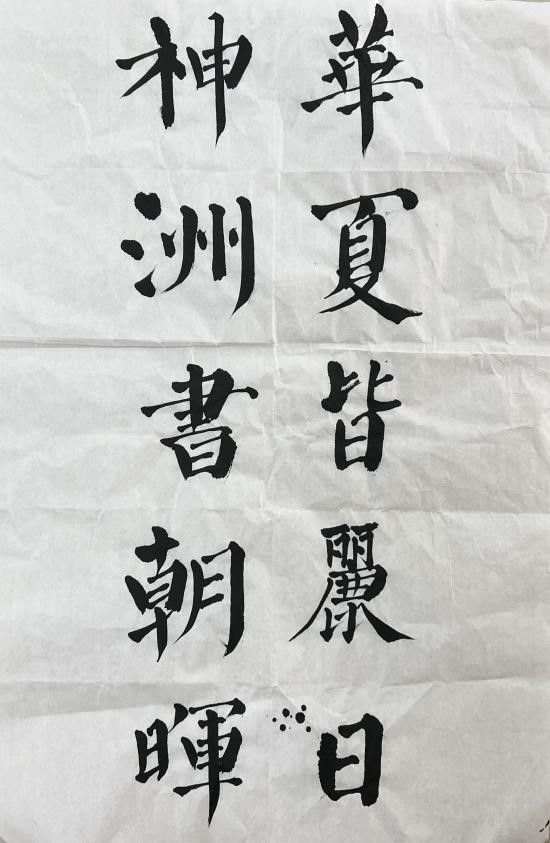 華夏皆麗日
神洲書朝暉